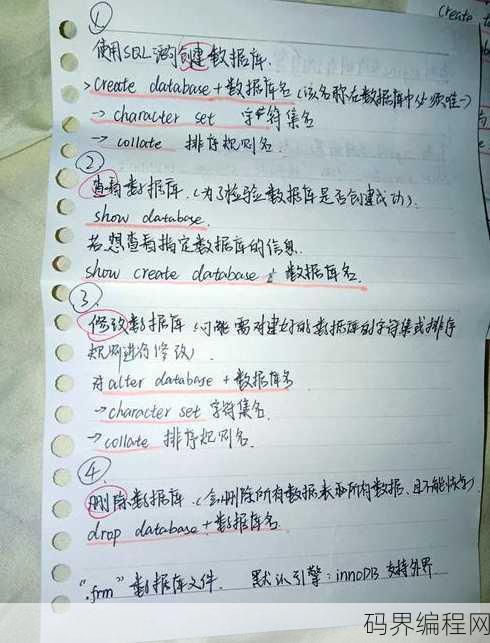 ①
使用SQL语句创建数据库.
>Create database+数据库名(该名称在数据库中必须唯一)
→ character set 字符集名
→ collate 排序规则名
②
查看数据库.(为了检验数据库是否创建成功).
show database.
若想查看指定数据库的信息.
show create database 数据库名.
③
修改数据库(可能需对建好的数据库的字符集或排序
规则进行修改)
alter database + 数据库名
→character set 字符集名.
→collate 排序规则名.
④
删除数据库.(会删除所有数据表和所有数据、且不能恢复)
drop database+数据库名
".frm" 数据库文件. 默认引擎:innoDB 支持外界
码界编程网
Create